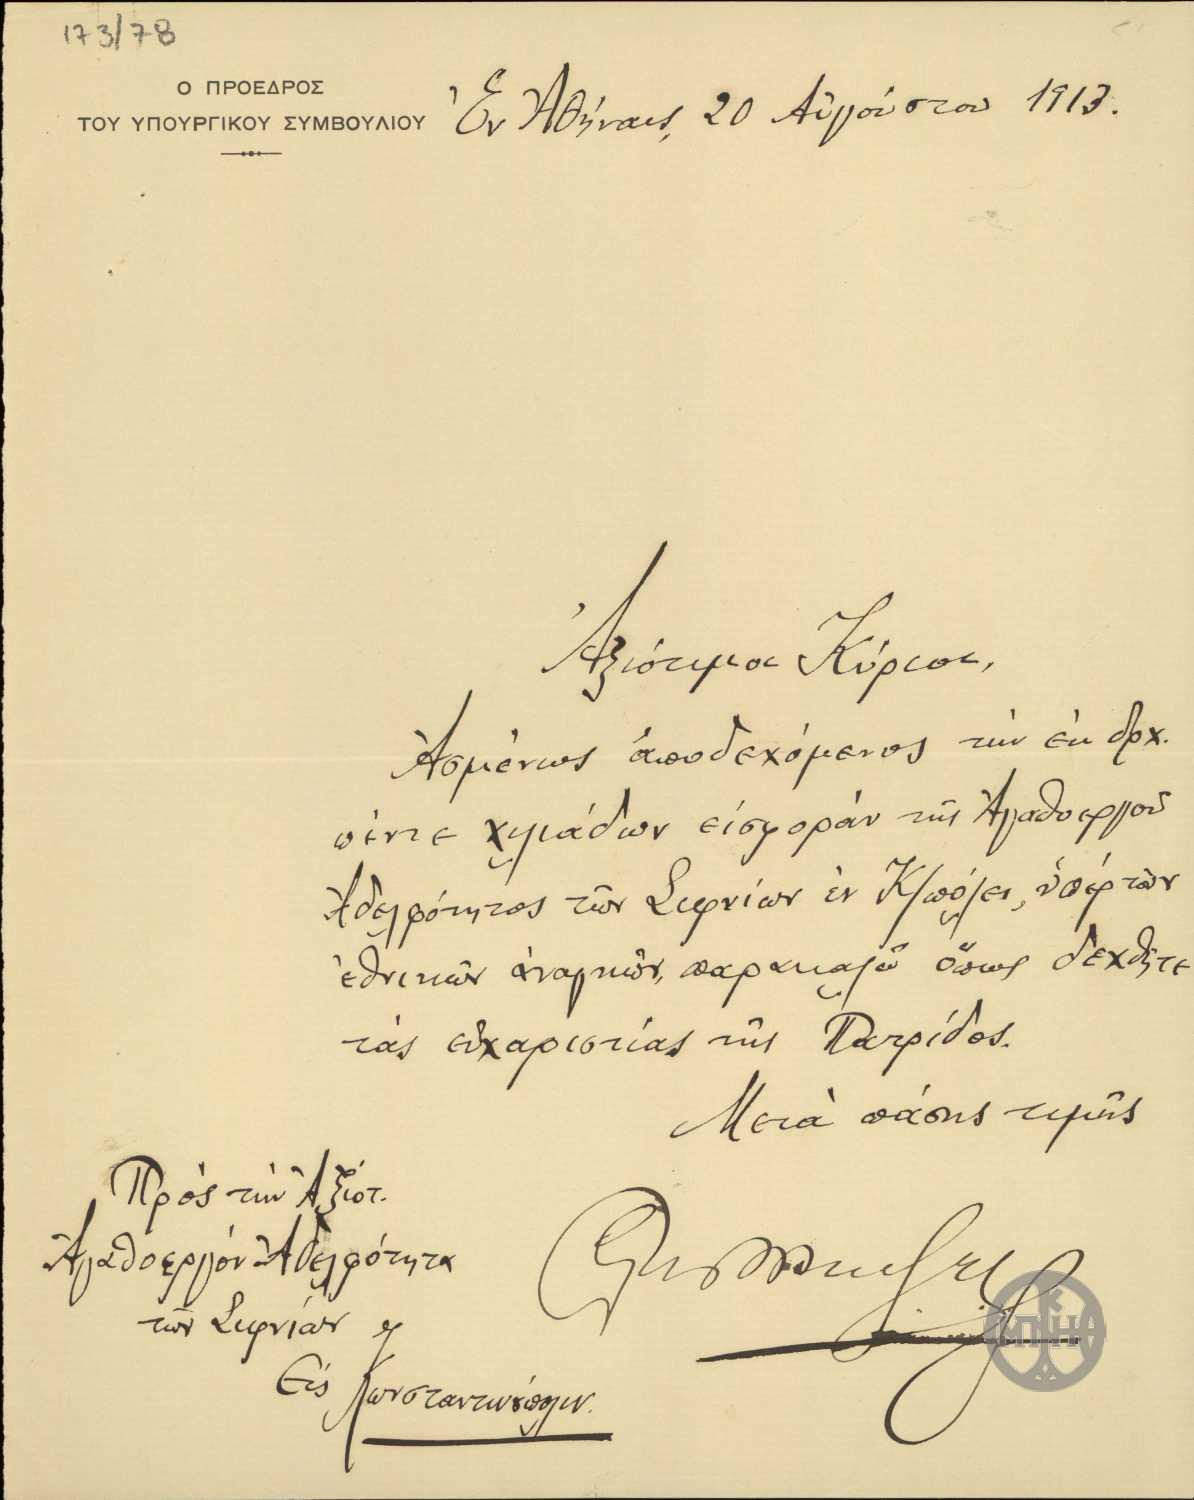 173/78
Ο ΠΡΟΕΔΡΟΣ
ΤΟΥ ΥΠΟΥΡΓΙΚΟΥ ΣΥΜΒΟΥΛΙΟΥ
Ἐν Ἀθήναις, 20 Αὐγούστου 1913.
Ἀξιότιμοι Κύριοι,
Ἀσμένως ἀποδεχόμενος τὴν ἐκ δρχ.
πέντε χιλιάδων εἰσφορὰν τῆς Ἀγαθοεργοῦ
Ἀδελφότητος τῶν Σιφνίων ἐν Κ/πόλει, ὑπὲρ τῶν
ἐθνικῶν ἀναγκῶν, παρακαλῶ ὅπως δεχθῆτε
τὰς εὐχαριστίας τῆς Πατρίδος.
Μετὰ πάσης τιμῆς
Πρὸς τὴν Ἀξιότ.
Ἀγαθοεργὸν Ἀδελφότητα
τῶν Σιφνίων
Εἰς Κωνσταντινούπολιν.
ΜΠ ΗΘ